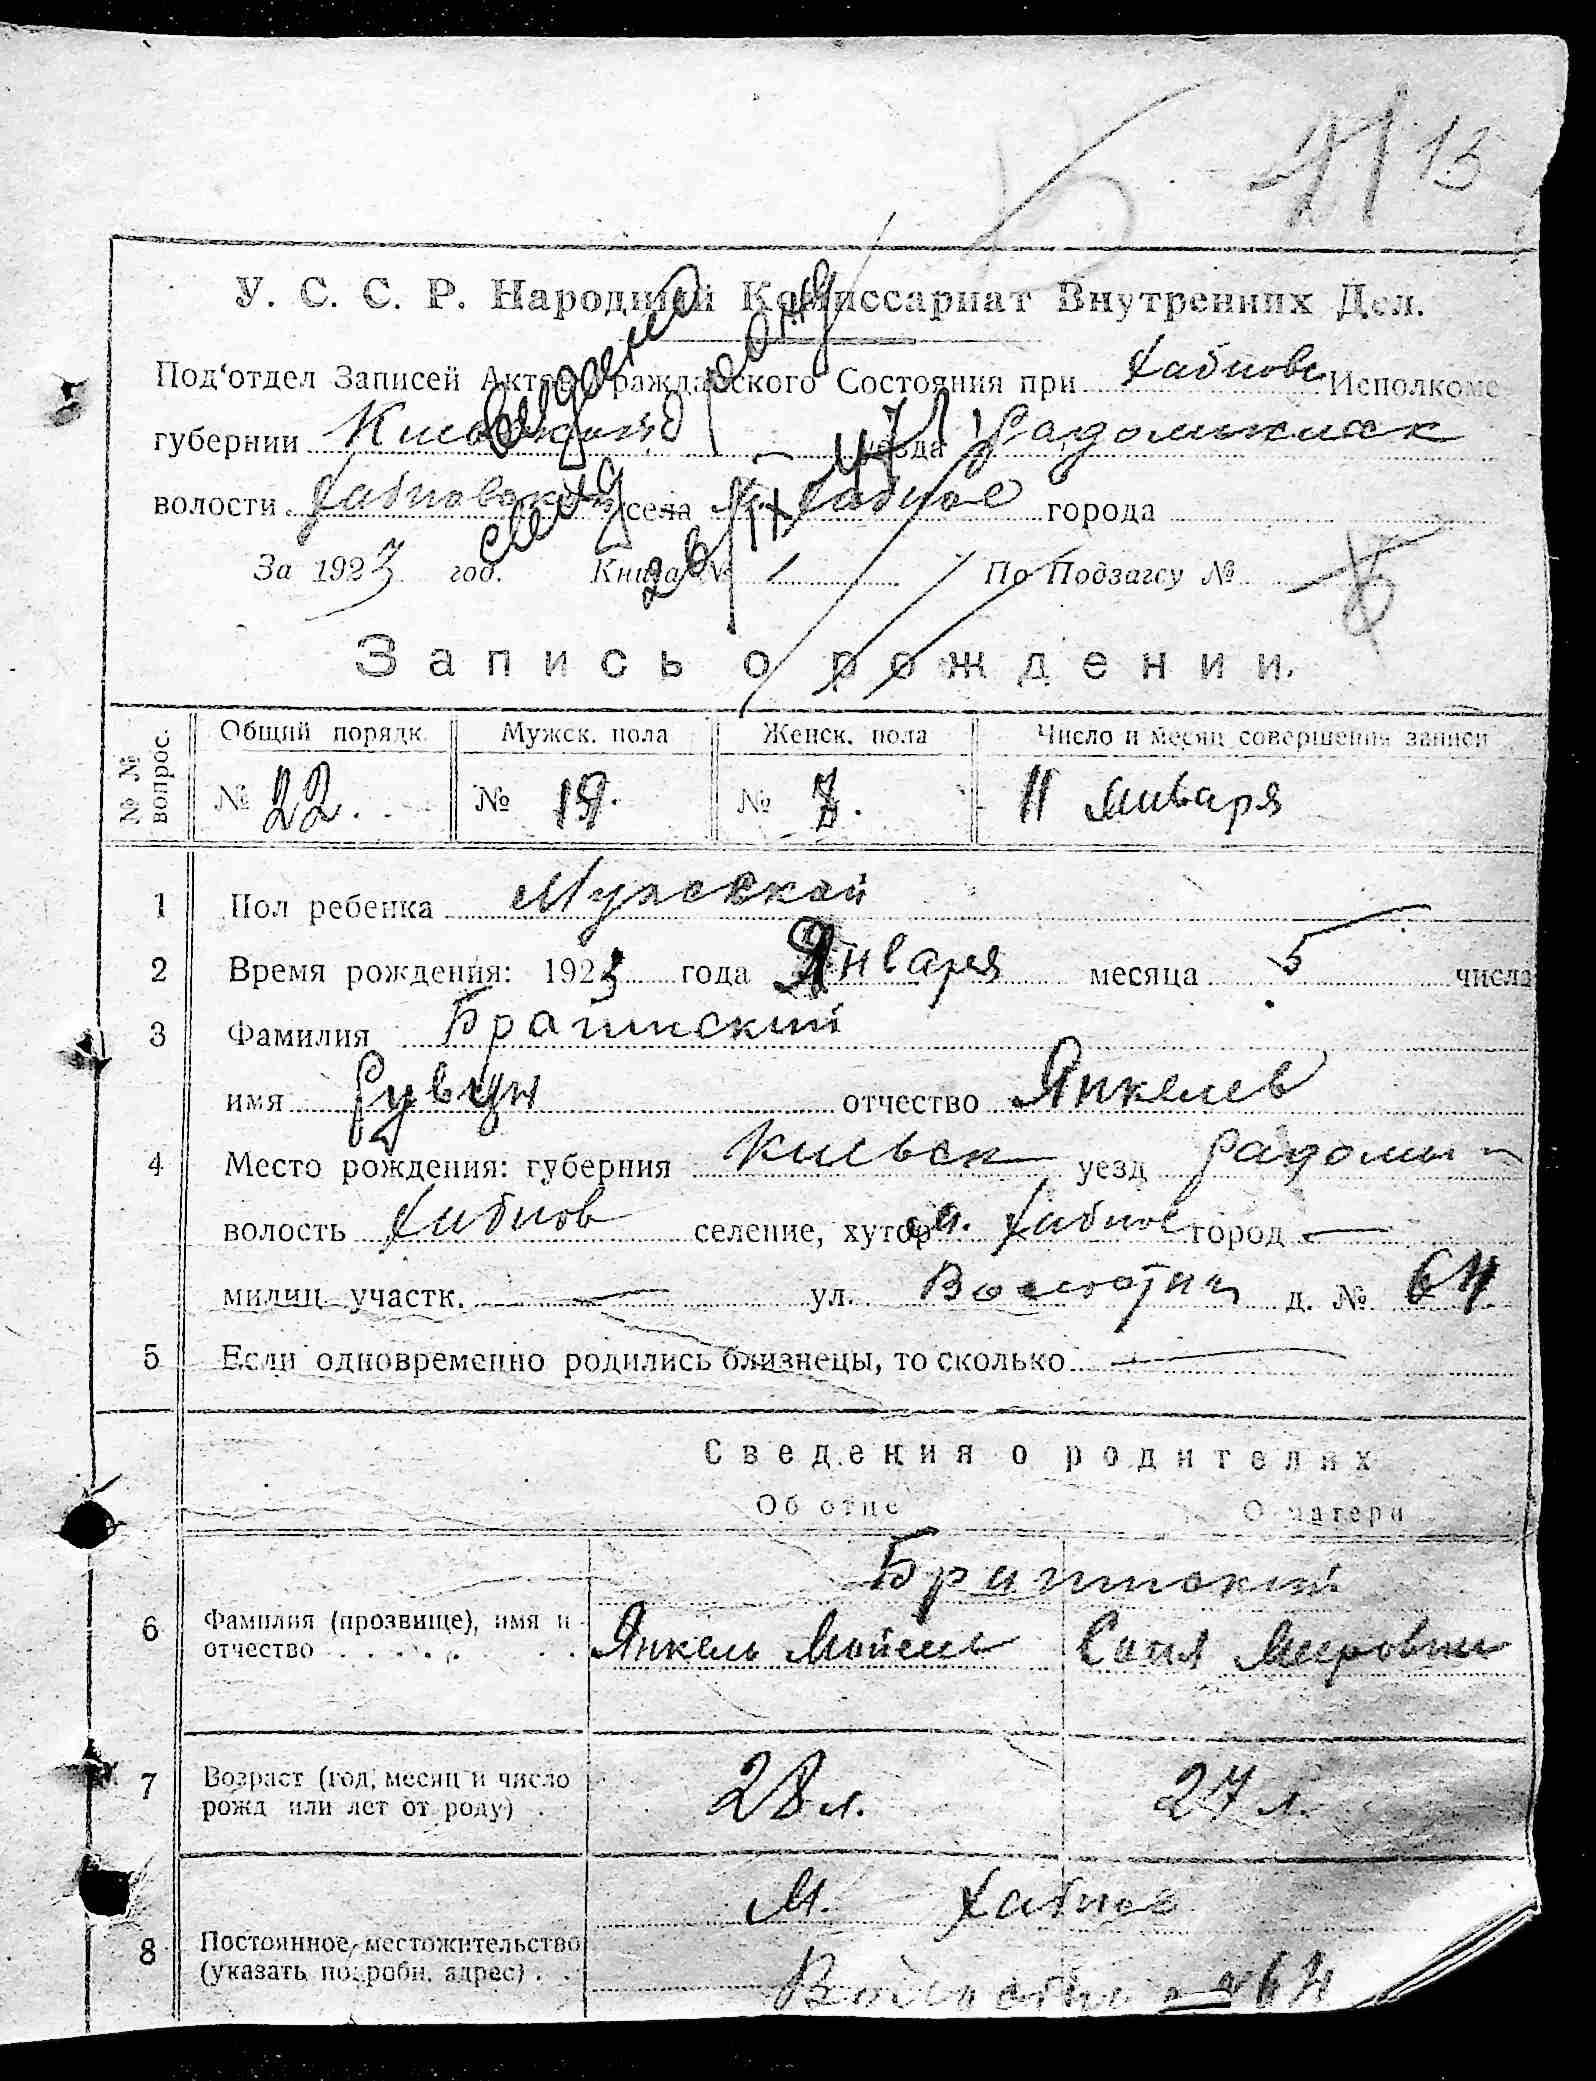 13
У. С. С. Р. Народный Комиссариат Внутренних Дел.
Под‘отдел Записей Актов Гражданского Состояния при Хабновс Исполкоме
губернии Киевской уезда Радомысльск
волости Хабновской села м. Хабное города
За 1923 год. Книга № 1 По Подзагсу №
Запись о рождении.
№ № вопрос. Общий порядк. Мужск. пола Женск. пола Число и месяц совершения записи
№ 22. № № 11 января
1 Пол ребенка Мужской
2 Время рождения: 1923 года Января месяца 5 числа
3 Фамилия Брагинский
имя Рувин отчество Янкелев
4 Место рождения: губерния Киевск уезд Радомы
волость Хабнов селение, хутор м. Хабное город —
милиц участк. — ул. д. № 64
5 Если одновременно родились близнецы, то сколько —
Сведения о родителях
Об отце О матери
Брагинский
6 Фамилия (прозвище), имя и Янкель Мойсев Соня Меровна
отчество
7 Возраст (год, месяц и число 28 л. 27 л.
рожд или лет от роду)
М. Хабное
8 Постоянное местожительство
(указать подробн. адрес) № 64